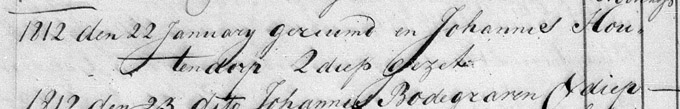 1812 den 22 January geruimd en Johannes Hou-
tendorp 2 diep gezet
1812 den 23 dito Johannes Bodegraven 2 diep